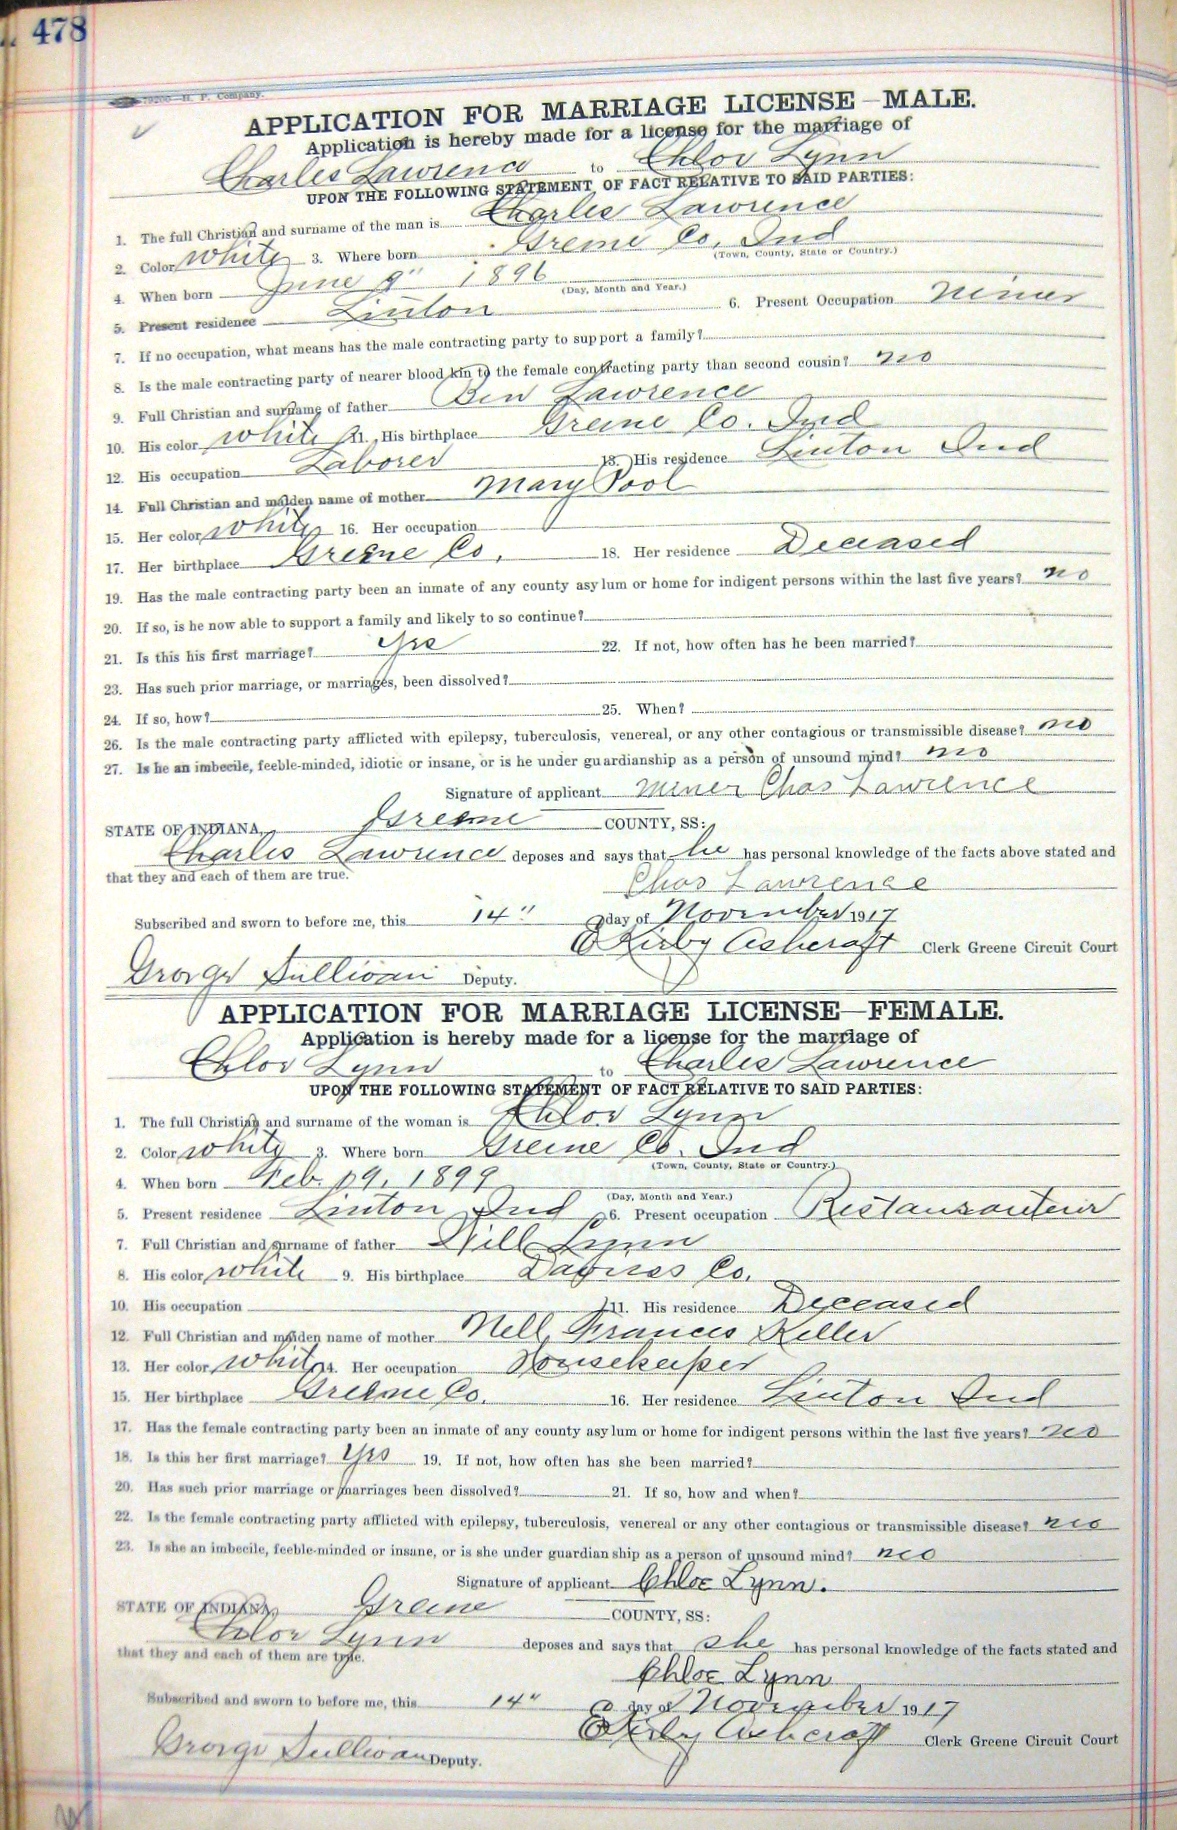 478
79200—H. P. Company.
APPLICATION FOR MARRIAGE LICENSE—MALE.
Application is hereby made for a license for the marriage of
Charles Lawrence to Chloe Lynn
UPON THE FOLLOWING STATEMENT OF FACT RELATIVE TO SAID PARTIES:
1. The full Christian and surname of the man is Charles Lawrence
2. Color white 3. Where born Greene Co. Ind
(Town, County, State or Country.)
4. When born June 9" 1896
(Day, Month and Year.)
5. Present residence Linton 6. Present Occupation Miner
7. If no occupation, what means has the male contracting party to support a family?
8. Is the male contracting party of nearer blood kin to the female contracting party than second cousin? no
9. Full Christian and surname of father Ben Lawrence
10. His color white 11. His birthplace Greene Co. Ind
12. His occupation Laborer 13. His residence Linton Ind
14. Full Christian and maiden name of mother Mary Pool
15. Her color white 16. Her occupation
17. Her birthplace Greene Co. 18. Her residence Deceased
19. Has the male contracting party been an inmate of any county asylum or home for indigent persons within the last five years? no
20. If so, is he now able to support a family and likely to so continue?
21. Is this his first marriage? yes 22. If not, how often has he been married?
23. Has such prior marriage, or marriages, been dissolved?
24. If so, how? 25. When?
26. Is the male contracting party afflicted with epilepsy, tuberculosis, venereal, or any other contagious or transmissible disease? no
27. Is he an imbecile, feeble-minded, idiotic or insane, or is he under guardianship as a person of unsound mind? no
Signature of applicant miner Chas Lawrence
STATE OF INDIANA, Greene COUNTY, SS:
Charles Lawrence deposes and says that he has personal knowledge of the facts above stated and
that they and each of them are true.
Chas Lawrence
Subscribed and sworn to before me, this 14" day of November 1917
E Kirby Ashcraft Clerk Greene Circuit Court
George Sullivan Deputy.
APPLICATION FOR MARRIAGE LICENSE—FEMALE.
Application is hereby made for a license for the marriage of
Chloe Lynn to Charles Lawrence
UPON THE FOLLOWING STATEMENT OF FACT RELATIVE TO SAID PARTIES:
1. The full Christian and surname of the woman is Chloe Lynn
2. Color white 3. Where born Greene Co. Ind
(Town, County, State or Country.)
4. When born Feb. 19, 1899
(Day, Month and Year.)
5. Present residence Linton Ind 6. Present occupation Restauranteur
7. Full Christian and surname of father Will Lynn
8. His color white 9. His birthplace Daviess Co.
10. His occupation 11. His residence Deceased
12. Full Christian and maiden name of mother Nell Frances Keller
13. Her color white 14. Her occupation Housekeeper
15. Her birthplace Greene Co. 16. Her residence Linton Ind
17. Has the female contracting party been an inmate of any county asylum or home for indigent persons within the last five years? no
18. Is this her first marriage? Yes 19. If not, how often has she been married?
20. Has such prior marriage or marriages been dissolved? 21. If so, how and when?
22. Is the female contracting party afflicted with epilepsy, tuberculosis, venereal or any other contagious or transmissible disease? no
23. Is she an imbecile, feeble-minded or insane, or is she under guardianship as a person of unsound mind? no
Signature of applicant Chloe Lynn.
STATE OF INDIANA, Greene COUNTY, SS:
Chloe Lynn deposes and says that she has personal knowledge of the facts stated and
that they and each of them are true.
Chloe Lynn
Subscribed and sworn to before me, this 14" day of November 1917
E Kirby Ashcraft Clerk Greene Circuit Court
George Sullivan Deputy.